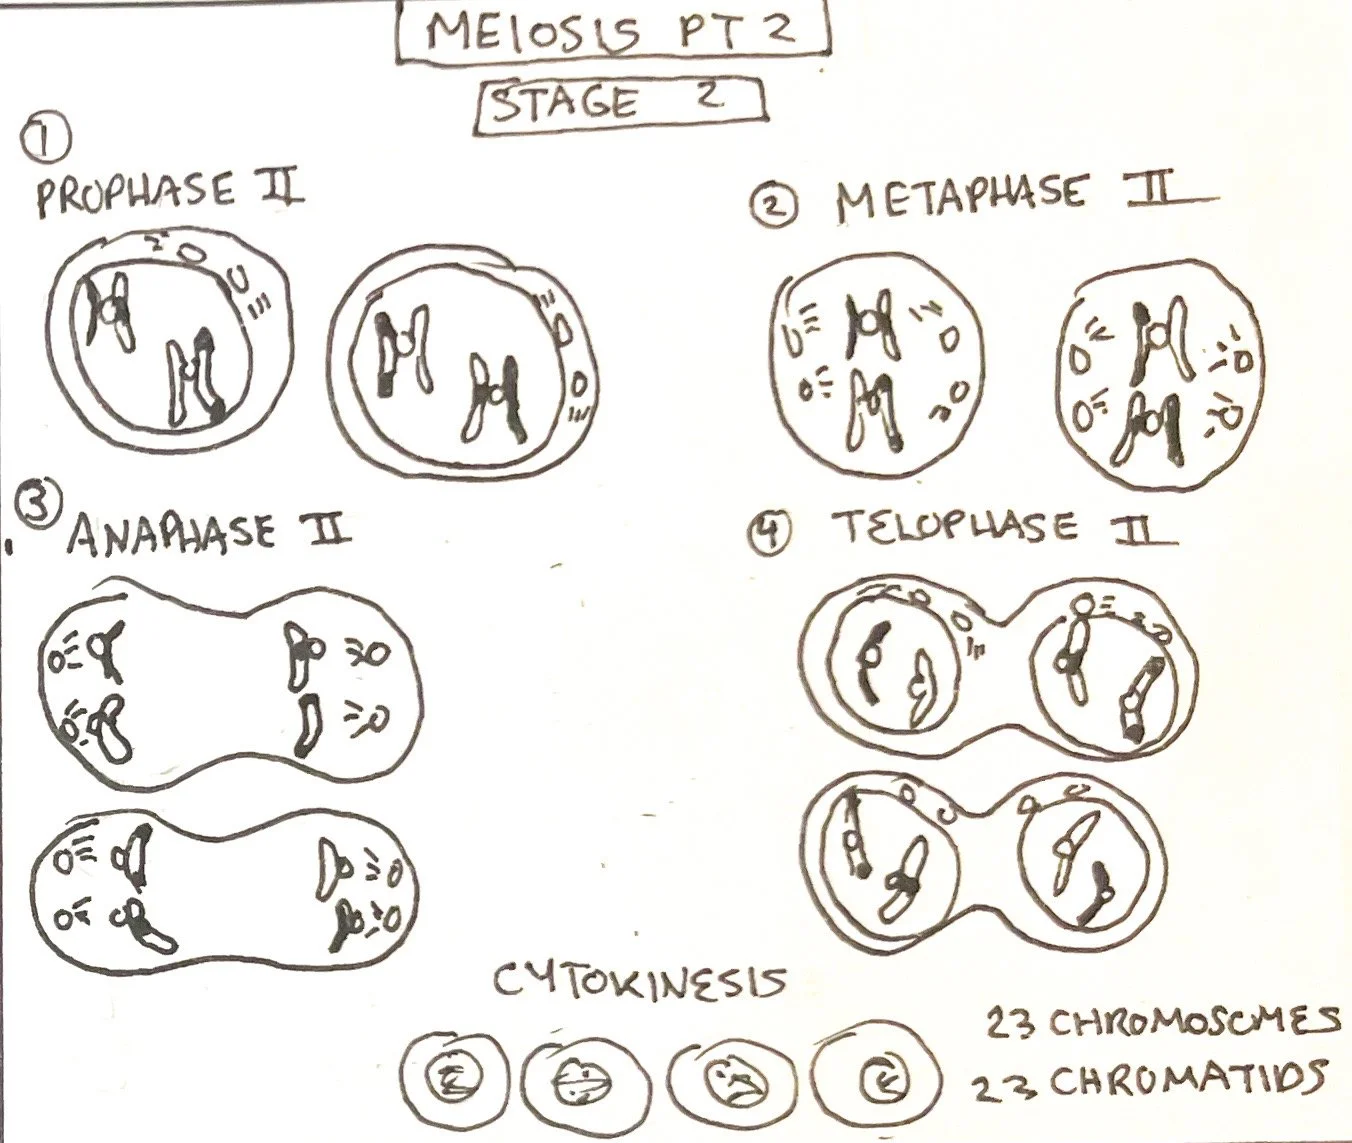 MEIOSIS PT 2
STAGE 2
①
PROPHASE II
② METAPHASE II
③ ANAPHASE II
④ TELOPHASE II
CYTOKINESIS
23 CHROMOSOMES
23 CHROMATIDS